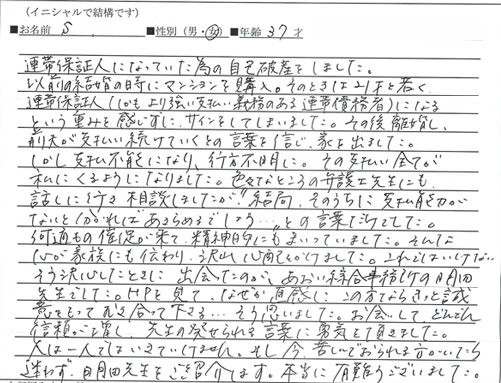 (イニシャルで結構です)
■お名前 S. ■性別(男・女) ■年齢 37 才
連帯保証人になっていた為の自己破産をしました。
以前の結婚の時にマンションを購入。そのときは21才と若く、
連帯保証人(しかもより強い支払い義務のある連帯債務者)になる
という重みを感じずに、サインをしてしまいました。その後離婚し、
前夫が支払い続けていくとの言葉を信じ、家を出ました。
しかし支払不能になり、行方不明に。その支払い全てが
私にくるようになりました。色々なところの弁護士先生にも
話しに行き相談しましたが"結局、そのうちに支払能力が
ないと分かればあきらめるでしょう…"との言葉だけでした。
何通もの催促が来て、精神的にもまいっていました。そんな
心が家族にも伝わり、沢山心配をかけました。これではいけない、
そう決心したときに出会たのが、あおい綜合事務所の
先生でした。HPを見て、なぜか直感でこの方ならきっと誠
意をもって向き合って下さる…そう思いました。お会いして、どんどん
信頼が増し、先生の発せられる言葉に勇気を頂きました。
人は一人では生きていけません。もし今、苦しんでおられる方がいたら
迷わず、先生をご紹介します。本当に有難うございました。